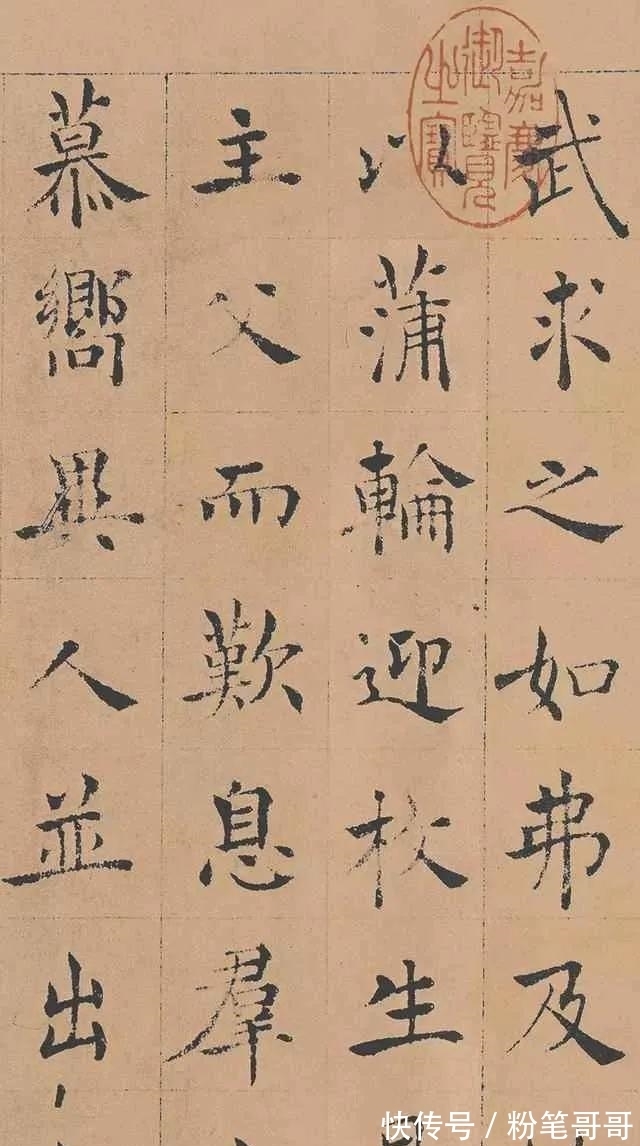 嘉慶御覽之寶
武求之如弗及
以蒲輪迎枚生
主父而歎息羣
慕嚮異人並出
快传号 / 粉笔哥哥